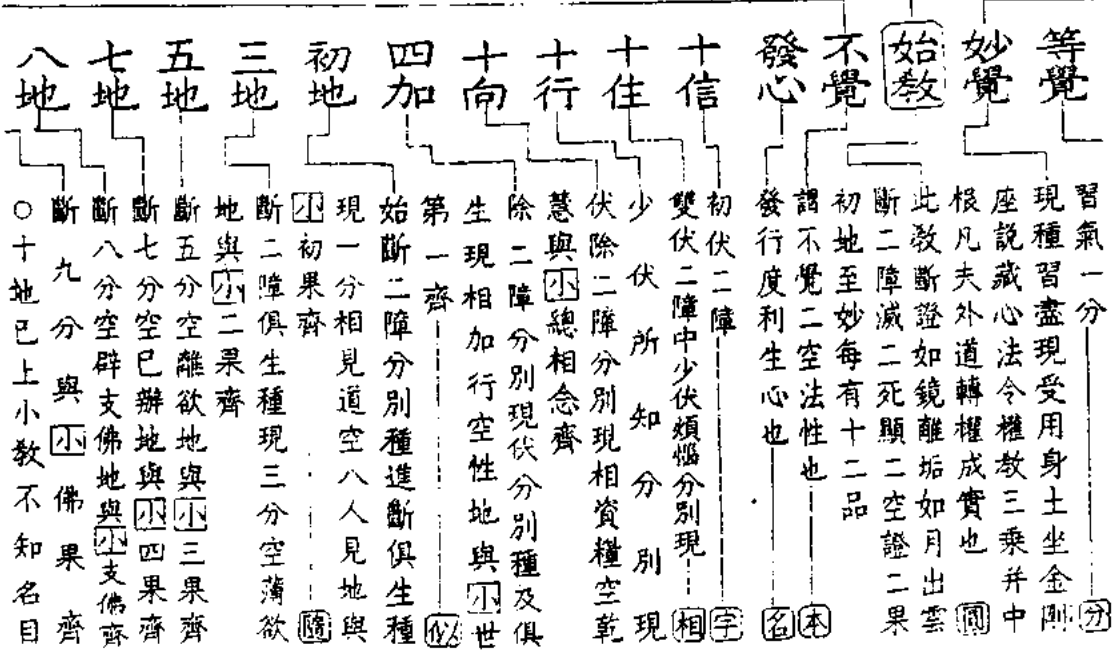 等覺
妙覺
始教
不覺
發心
十信
十住
十行
十向
四加
初地
三地
五地
七地
八地
習氣一分 分
現種習盡現受用身土坐金剛
座説藏心法令權教三乘并中
根凡夫外道轉權成實也
此教斷證如鏡離垢如月出雲
斷二障滅二死顯二空證二果
初地至妙每有十二品
謂不覺二空法性也 本
發行度利生心也 名
初伏二障 字
雙伏二障中少伏煩惱分別現 相
少伏所知分別現
伏除二障分別現相資糧空乾
慧與小總相念齊
除二障分別現伏分別種及俱
生現相加行空性地與小世
第一齊 似
始斷二障分別種進斷俱生種
現一分相見道空八人見地與
小初果齊 隨
斷二障俱生種現三分空薄欲
地與小二果齊
斷五分空離欲地與小三果齊
斷七分空已辦地與小四果齊
斷八分空辟支佛地與小支佛齊
斷九分與小佛果齊
○十地已上小教不知名目